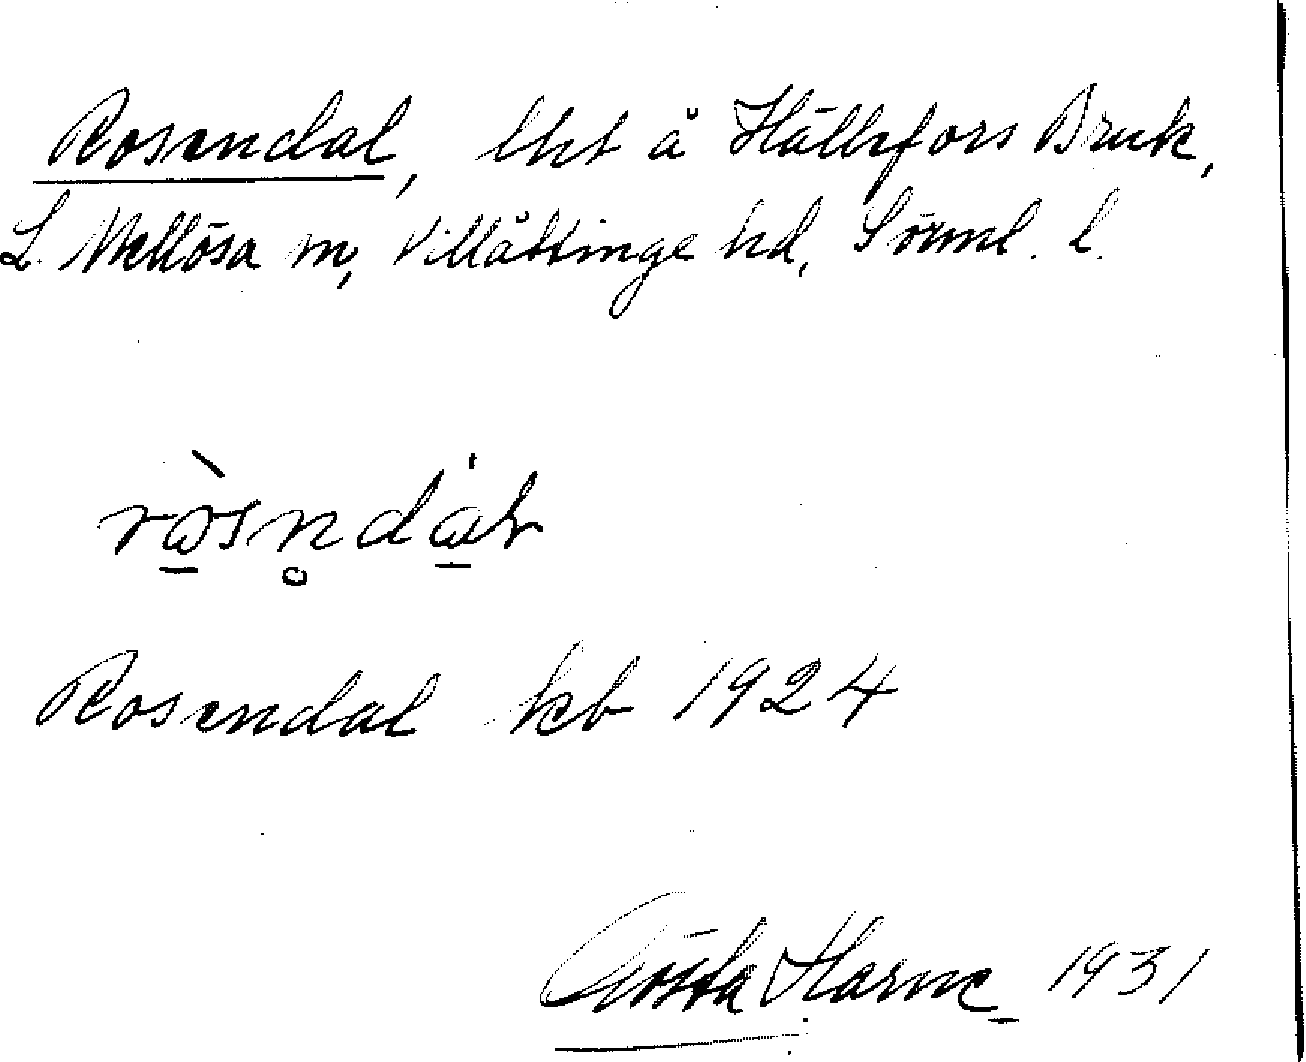 Rosendal, lht å Hällefors Bruk,
L. Mellösa sn, Villåttinge hd, Sörml. l.
Rosendal kb 1924
Gösta Harne 1931